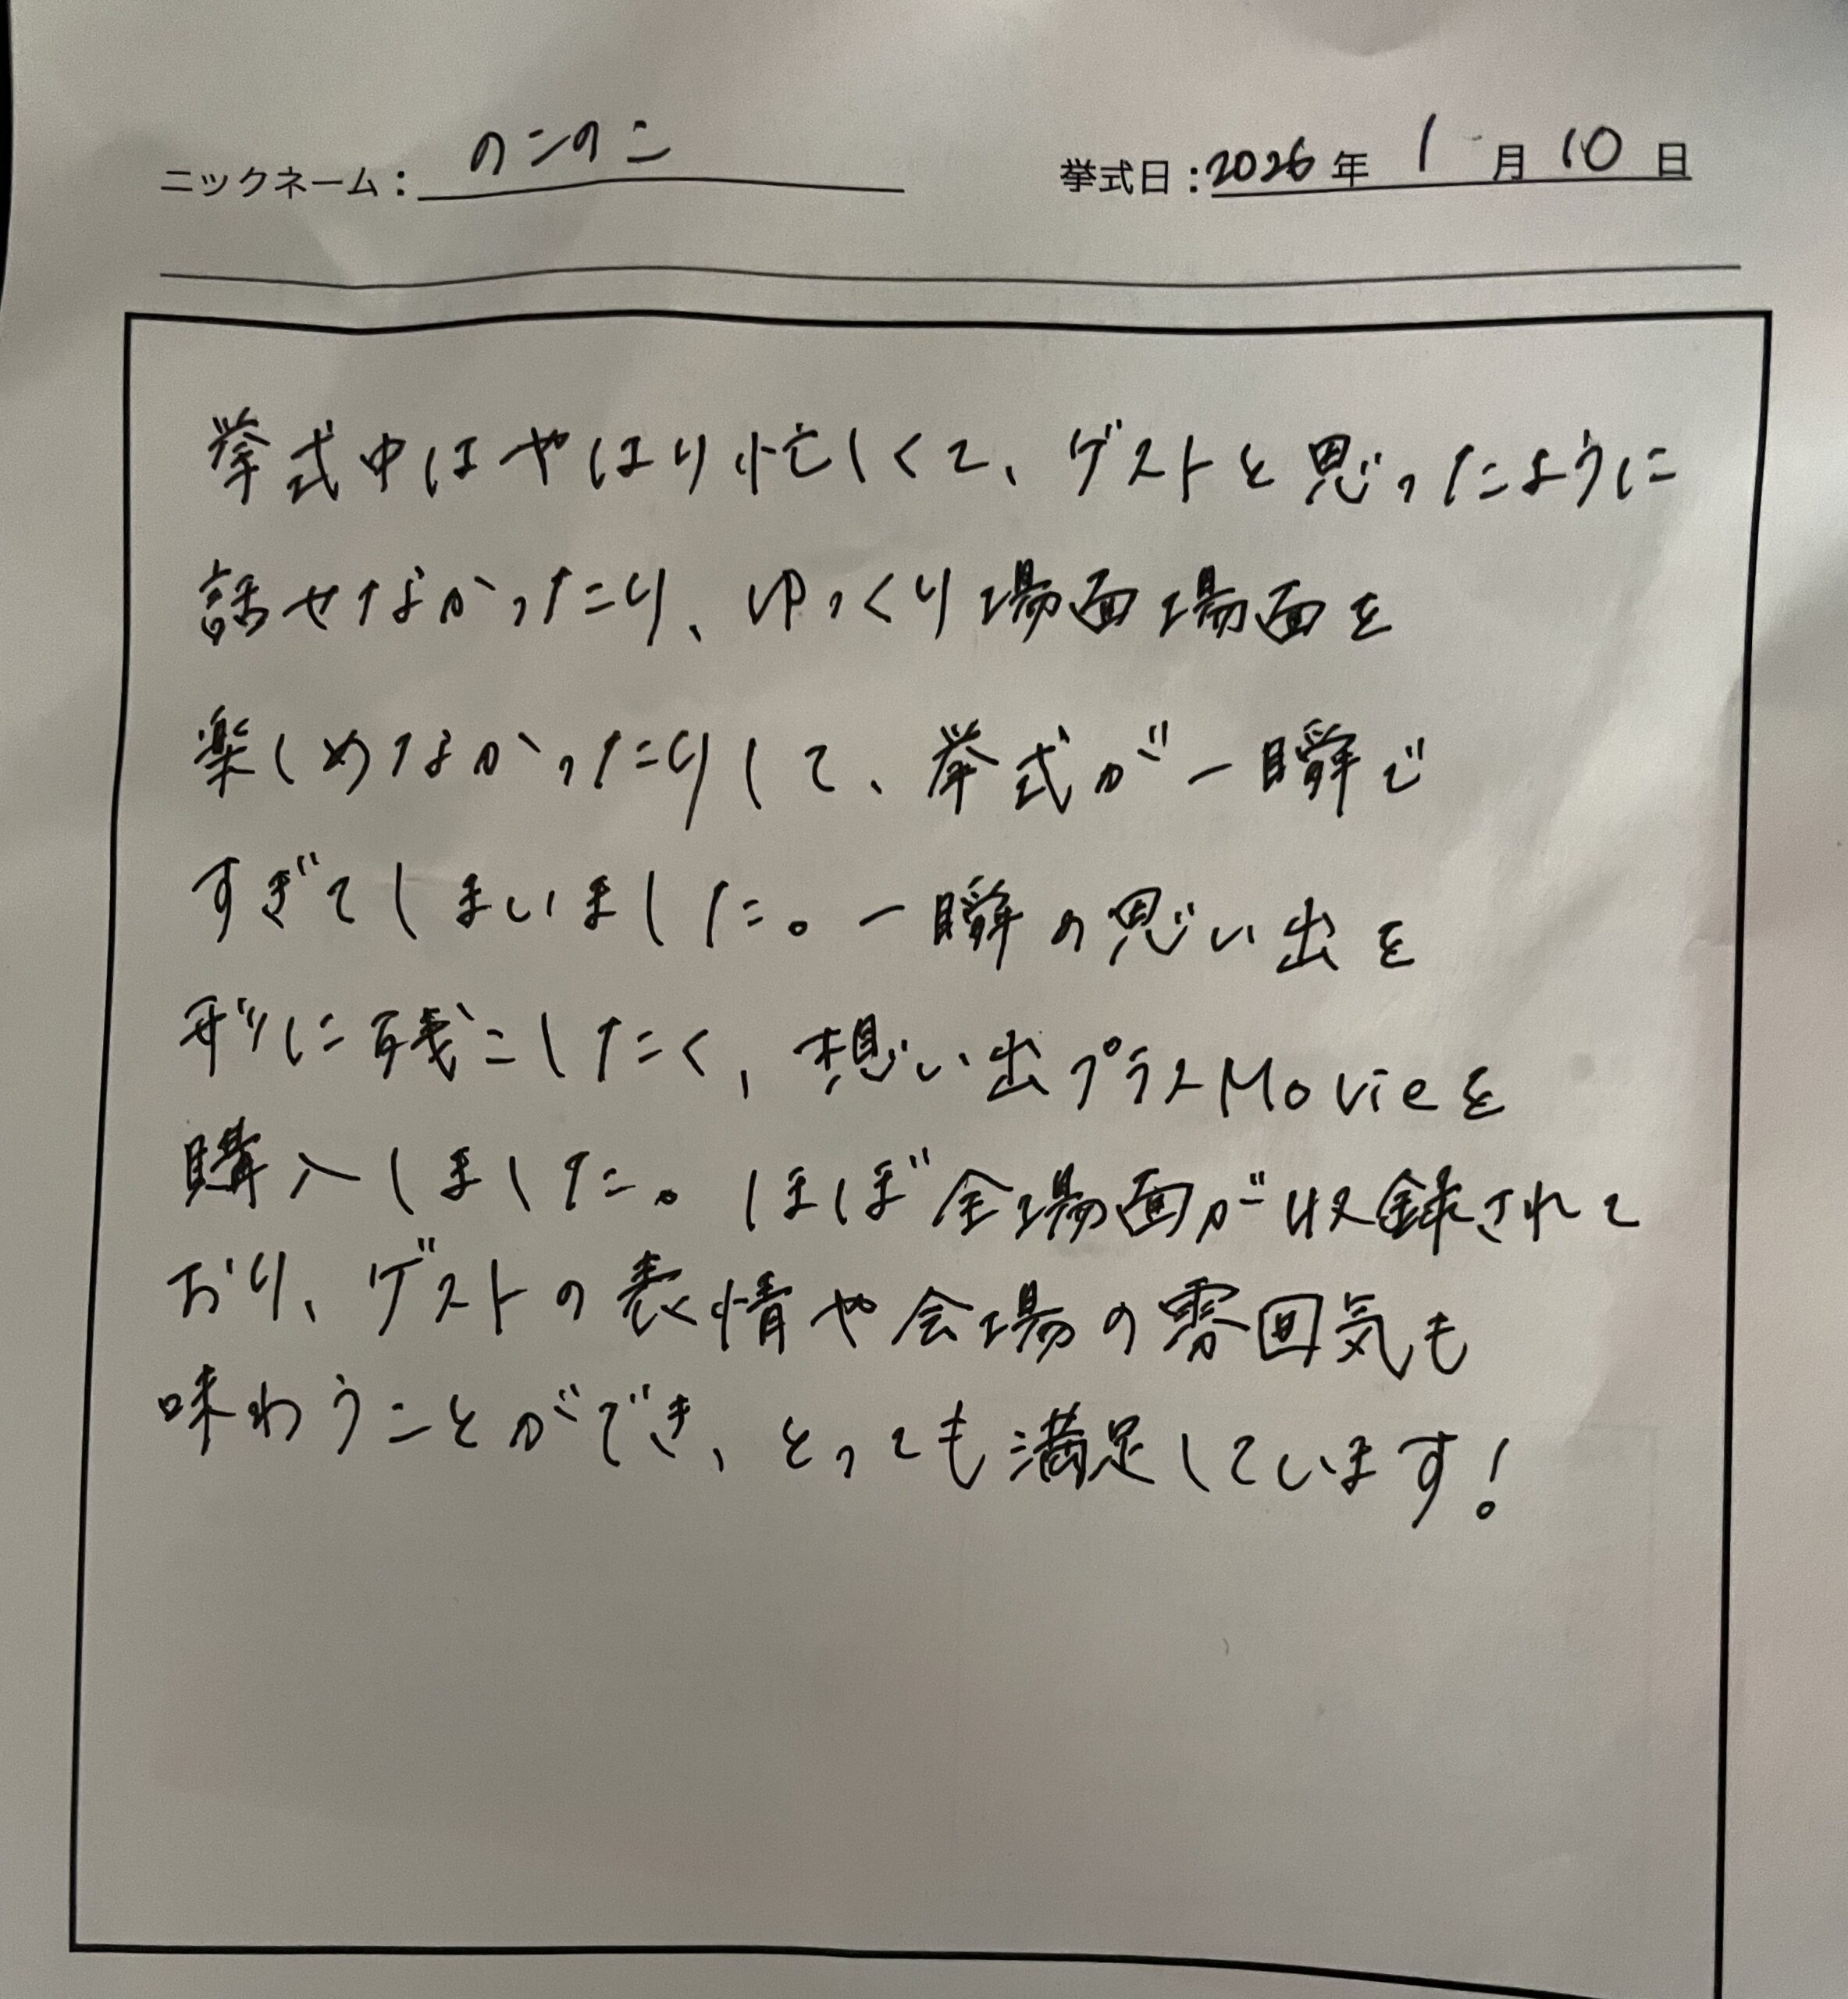 ニックネーム：のこのこ
挙式日：2026年 1月 10日
挙式中はやはり忙しくて、ゲストと思ったように
話せなかったり、ゆっくり場面場面を
楽しめなかったりして、挙式が一瞬で
すぎてしまいました。一瞬の思い出を
形に残こしたく、想い出プラスMovieを
購入しました。ほぼ全場面が収録されて
おり、ゲストの表情や会場の雰囲気も
味わうことができ、とっても満足しています！